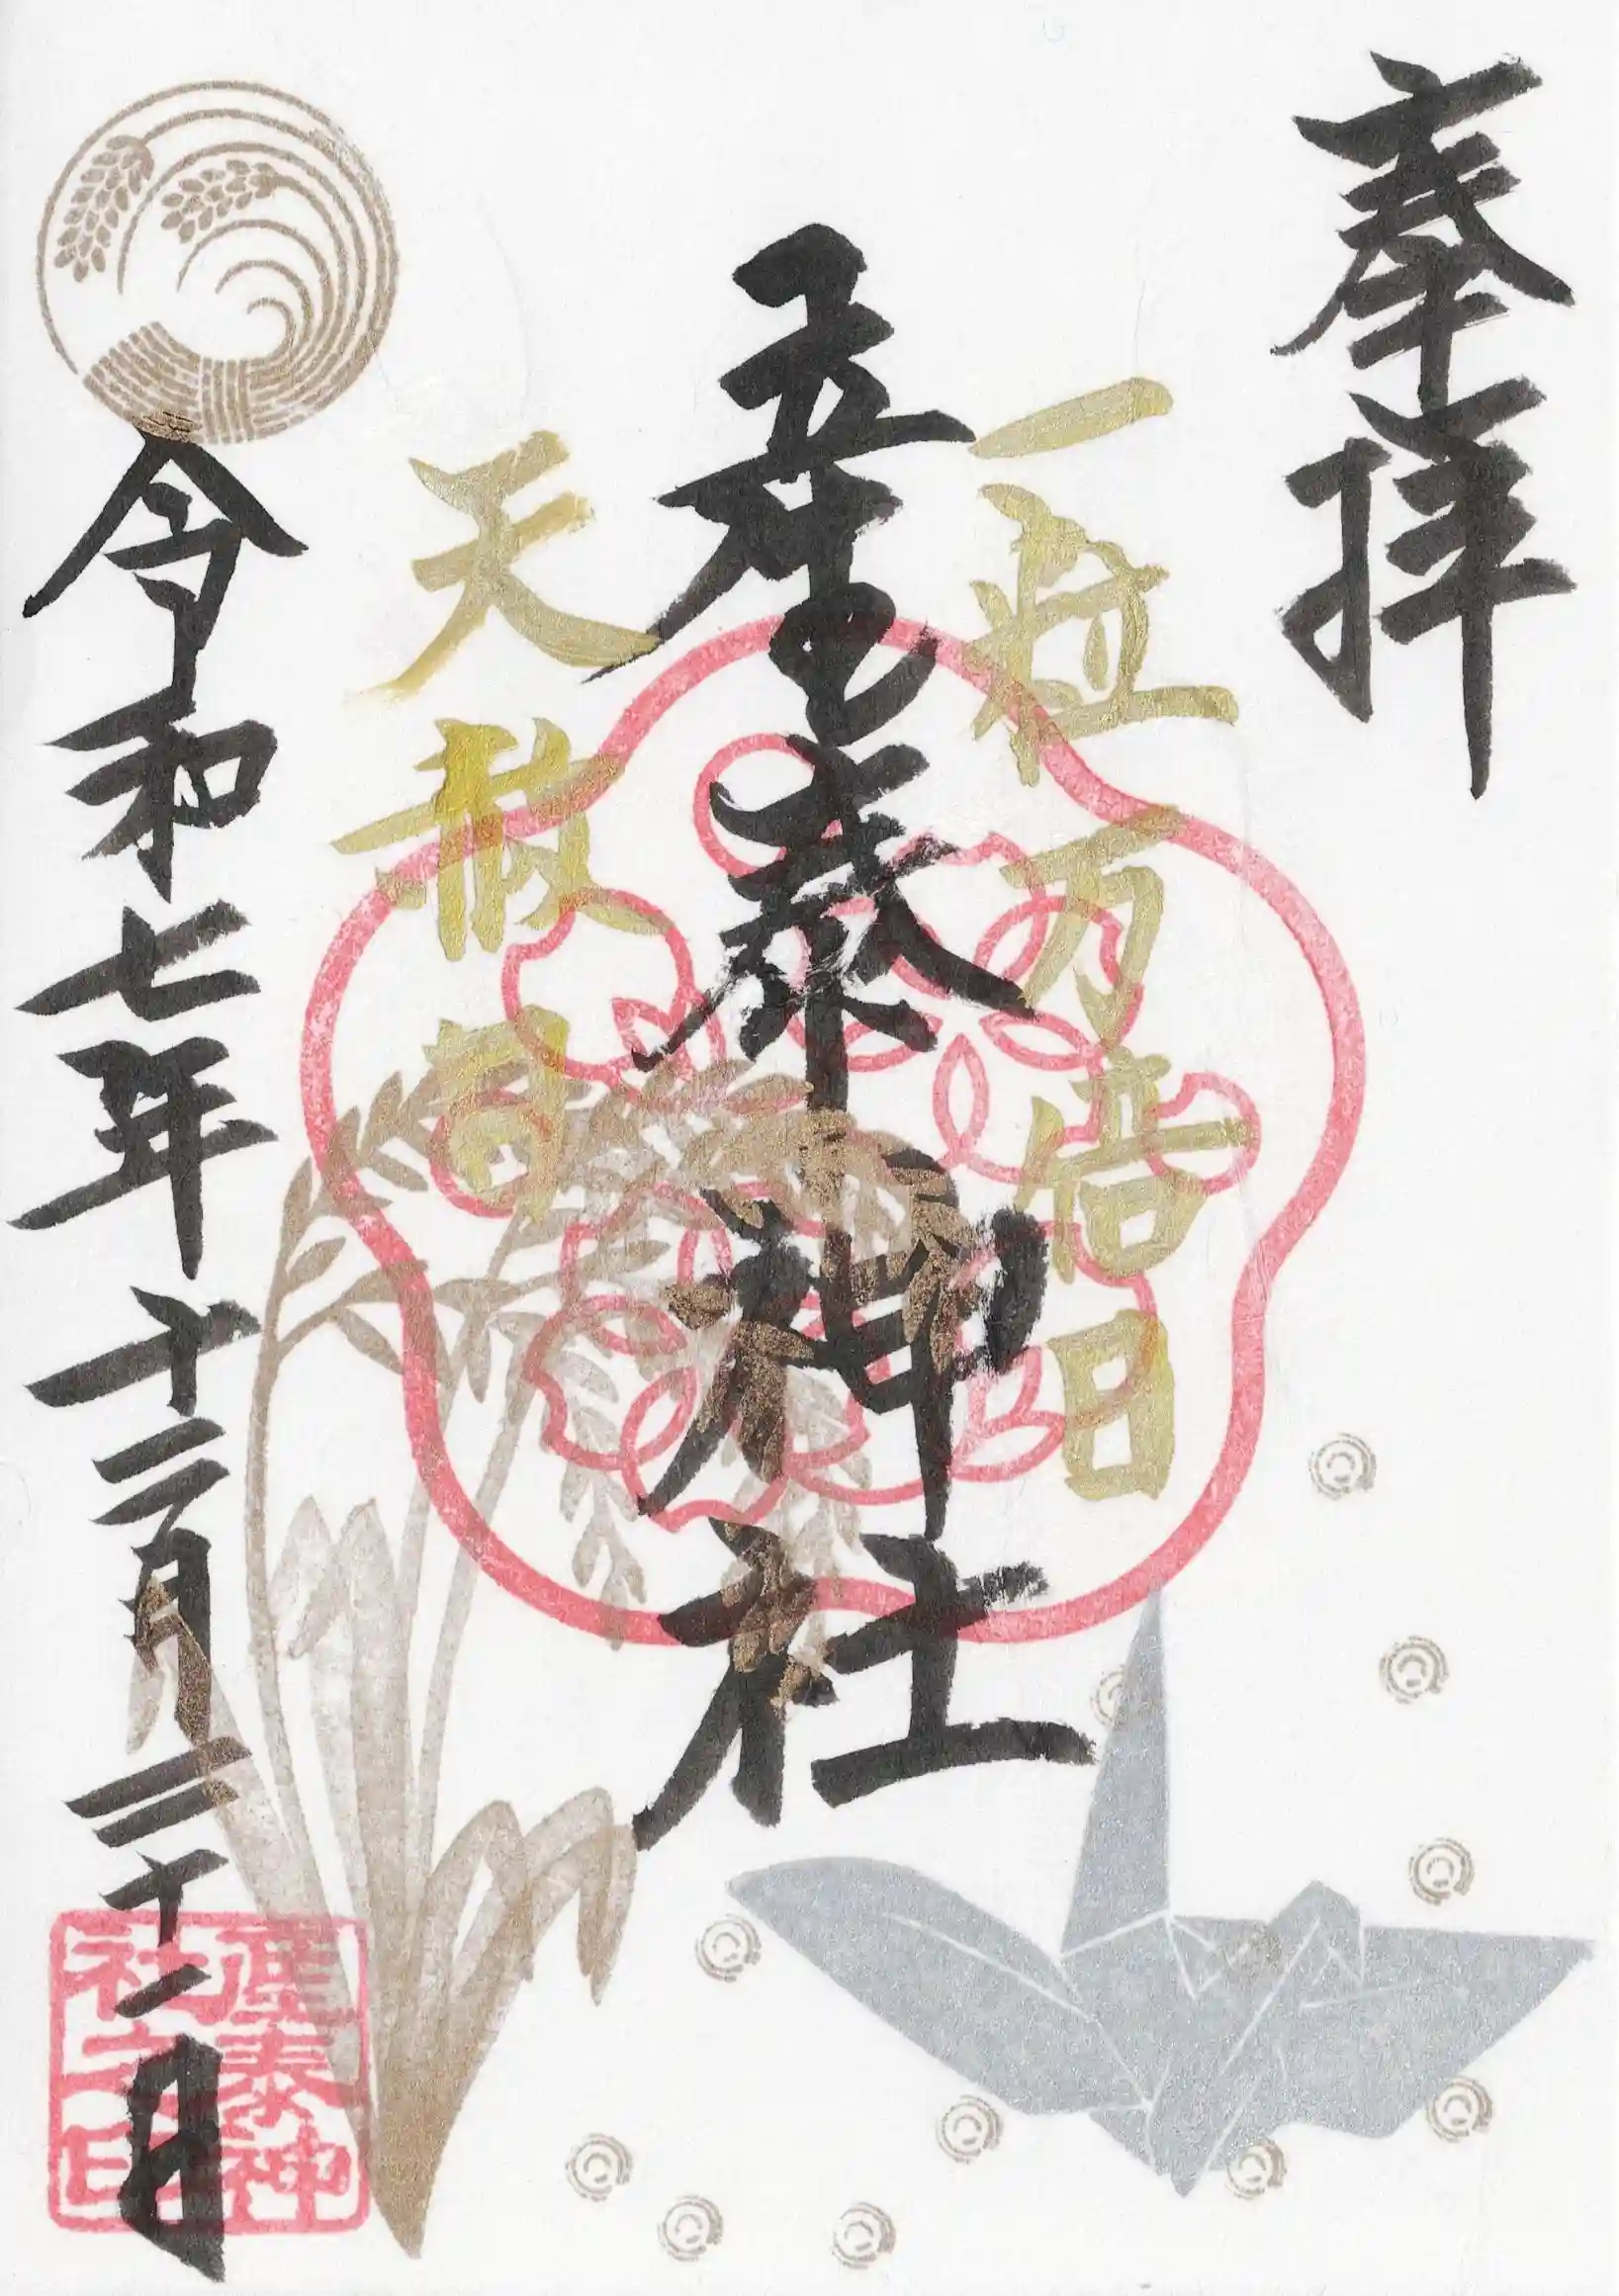 奉拝
一粒万倍日
産泰神社
天赦日
令和七年十二月二十一日
産泰神
社之印